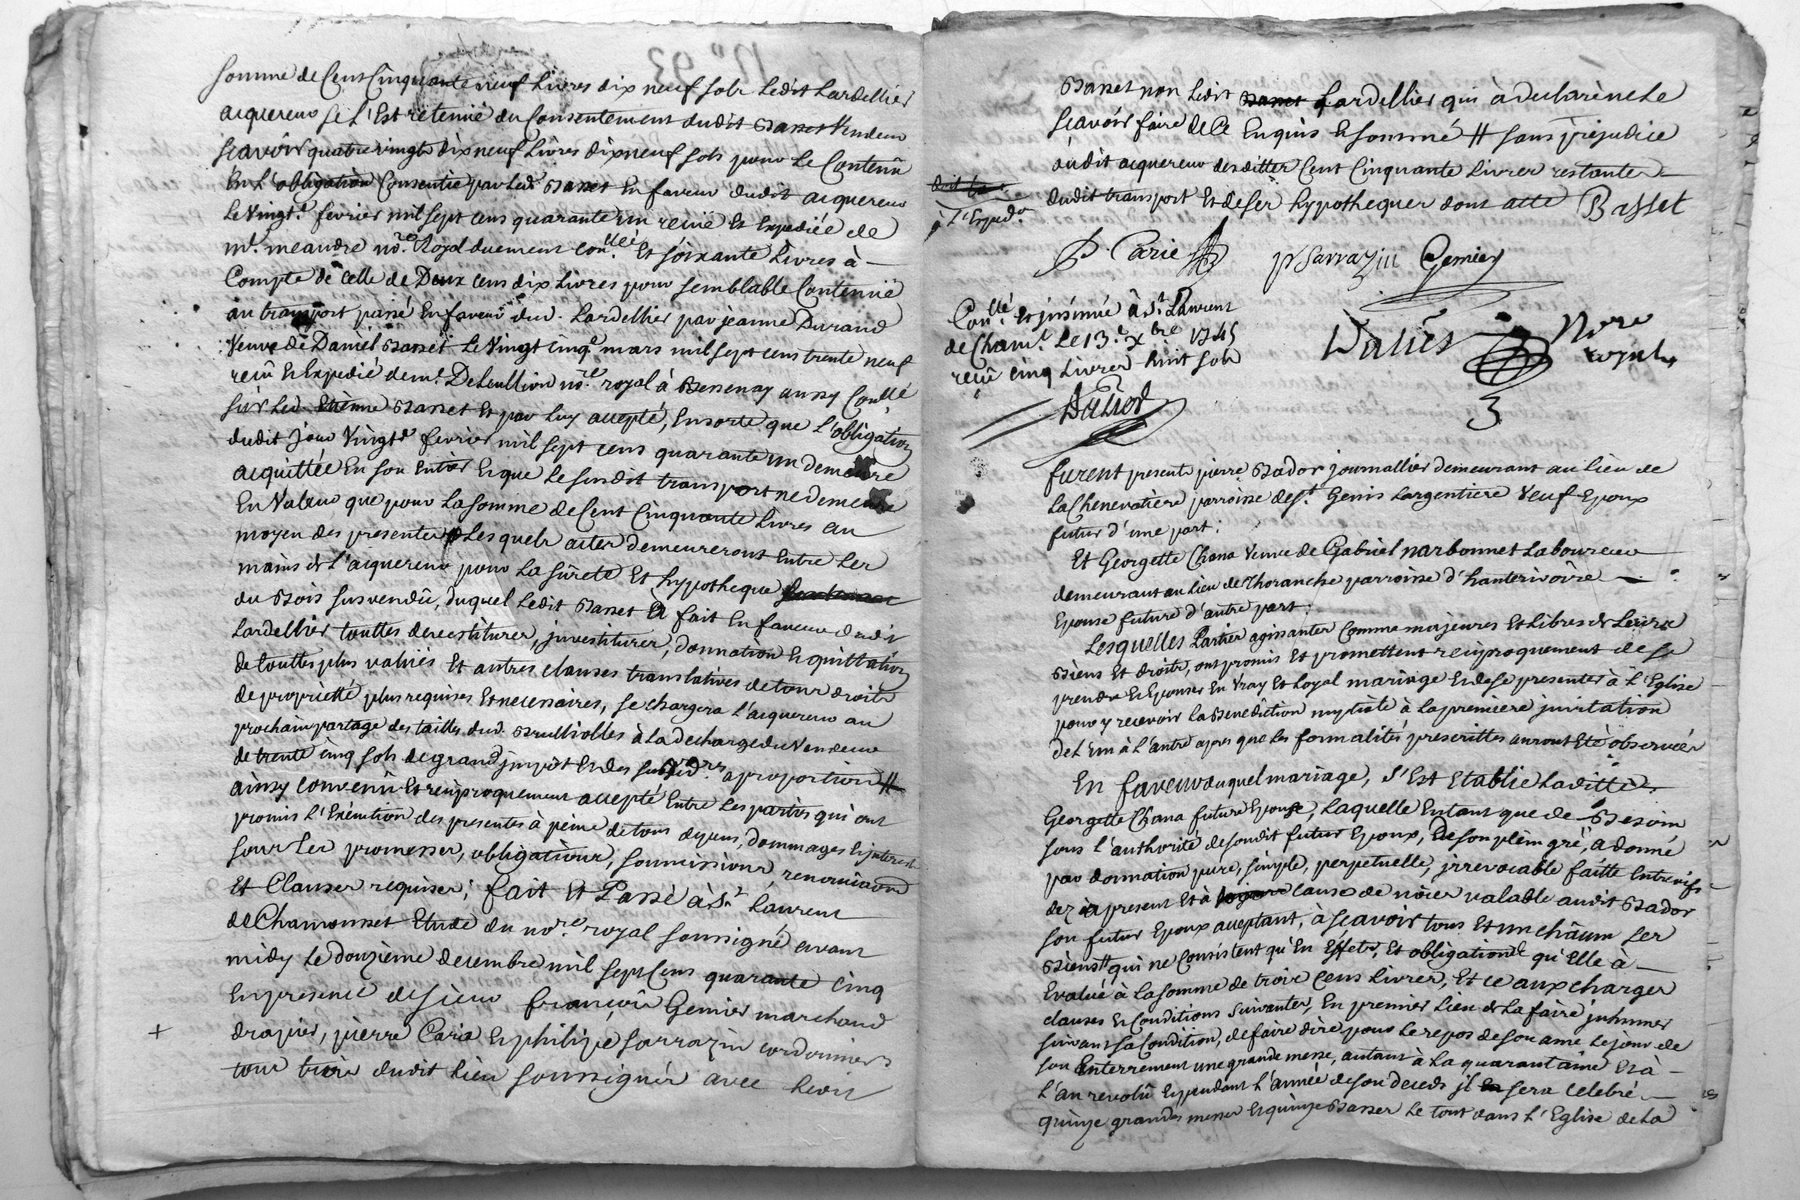 somme de Cent Cinquante neuf Livres dix neuf sols Ledit Lardellier
acquereur se l'Est retenüe du Consentement dudit Basset Vendeur
scavoir quatre vingts dix neuf Livres dix neuf sols pour Le Contenû
En l'obligation Consentie par Led. Basset En faveur dudit acquereur
Le Vingt. fevrier mil sept cens quarante un reçüe Et Expediée de
me. meandre nore. Royal duement conllée. Et soixante Livres à
Compte de Celle de Deux cens dix Livres pour semblable Contenüe
au transport passé En faveur dud. Lardellier par jeanne Durand
Veuve de Daniel Basset Le Vingt Cinqe. mars mil sept cens trente neuf
reçu Et Expedié de me. Deleullion nore. royal à Bessenay aussy Conllé
sur Led. Etiénne Basset Et par Luy accepté, En sorte que L'obligation
dudit jour Vingte. fevrier mil sept cens quarante un demeure
acquittée En son Entier Et que Le susdit transport ne demeure
En Valeur que pour La somme de Cent Cinquante Livres au
moyen des presentes Lesquels actes demeureront Entre Les
mains de L'acquereur pour La sûreté Et hypotheque
du Bois sus vendû, duquel Ledit Basset a fait En faveur dudit
Lardellier touttes devestitures, investitures, donnation Et quittation
de touttes plus values Et autres clauses translatives de tous droits
de proprietté plus requises Et necessaires, se chargera L'acquereur au
prochain partage des tailles dud. Brullioles à La decharge du Vendeur
de trente cinq sols de grand jmpôt Et des subsides a proportion #
ainsy Convenû Et reciproquement accepté Entre Les parties qui ont
promis L'Exécution des presentes à peine de tous depens, dommages Et interets
sous Les promesses, obligations, soumissions renonciations
Et Clauses requises; fait Et Passé à St. Laurent
de Chamousset Etude du nore. royal soussigné avant
midy Le douzième decembre mil sept Cens quarante cinq
En presence de sieur françois Gemier marchand
+ drapier, pierre Carie Et philipe sarrazin cordonniers
tous trois dudit Lieu soussignés avec Ledit
Basset non Ledit Basset Lardellier qui à declaré ne Le
scavoir faire de Ce Enquis Et sommé # sans prejudice
audit acquereur desdittes Cent Cinquante Livres restantes
dudit transport Et de ses hypotheques dont acte Basset
à L'Expedon.
P. Carie
p Sarrazin Gemier
Conllé. Et jnsinué à St. Laurent
de Chamt. Le 13e. Xbre 1745
reçu cinq Livres huit sols
Nore
royal
furent presents pierre Bador journallier demeurant au lieu de
La Chenevatiere parroisse de St. Genis Largentiere Veuf Epoux
futur d'une part:
Et Georgette Chana Veuve de Gabriel narbonnet Laboureur
demeurant au Lieu de Thoranche parroisse d'hauterivoire
Epouse future d'autre part:
Lesquelles Parties agissantes Comme majeures Et Libres de Leurs
Biens Et droits, ont promis Et promettent reciproquement de se
prendre Et Epouser En Vray Et Loyal mariage Et de se presenter à L'Eglise
pour y recevoir La Benediction nuptiale à La premiere jnvitation
de L'un à L'autre apres que Les formalités prescrittes auront Eté observées
En faveur duquel mariage, s'Est Etablie Laditte
Georgette Chana future Epouse, Laquelle En tant que de Besoin
sous l'authorité de sondit futur Epoux, De son plein gré, a donné
par donnation pure, simple, perpetuelle, jrrevocable faitte Entrevifs
dez à present Et à cause de nôces valable audit Bador
son futur Epoux acceptant, à scavoir tous Et un châcun ses
Biens # qui ne Consistent qu'En Effets, Et obligations qu'Elle à
Evalué à La somme de trois Cens Livres, Et ce aux charges
clauses Et Conditions suivantes, En premier Lieu de La faire jnhumer
suivant sa Condition, de faire dire pour Le repos de son ame Le jour de
son Enterrement une grande messe, autant à La quarantaine Et à
L'an revolû Et pendant L'année de son deceds jl sera Celebré
quinze grandes messes Et quinze Basses Le tout dans L'Eglise de La